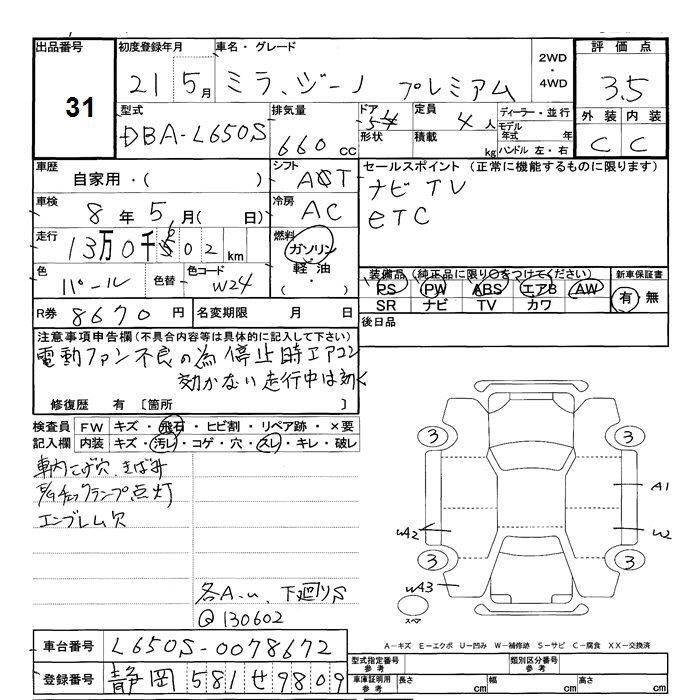 出品番号 初度登録年月 車名・グレード 2WD・4WD 評価点
31 21 5月 ミラ、ジーノ プレミアム 3.5
型式 排気量 ドア 定員 ディーラー・並行 外装 内装
DBA-L650S 660cc 54 4人 モデル年式 年 C C
形状 積載 kg ハンドル 左・右
車歴 シフト セールスポイント (正常に機能するものに限ります)
自家用・( ) AT ナビ TV
車検 冷房 eTC
8年5月( 日) AC
走行 燃料
13万0千502km ガソリン・軽油・( )
色 色替 色コード 装備品 (純正品に限り○をつけてください) 新車保証書
パール W24 PS PW ABS エアB AW 有・無
SR ナビ TV カワ
R券 8670円 名変期限 月 日 後日品
注意事項申告欄(不具合内容等は具体的に記入して下さい)
電動ファン不良の為停止時エアコン
効かない走行中は効く
修復歴 有 [箇所 ]
検査員記入欄 FW キズ・飛石・ヒビ割・リペア跡・×要
内装 キズ・汚レ・コゲ・穴・スレ・キレ・破レ
車内こげ穴、きばみ
E/gチェックランプ点灯
エンブレム欠
各A.u、下廻りS
@130602
3 3
A1
W2 W2
3 3
W43
スペア
A-キズ E-エクボ U-凹み W-補修跡 S-サビ C-腐食 XX-交換済
車台番号 L650S-0078672 型式指定番号 参考 類別区分番号 参考
登録番号 静岡 581 せ 9809 車庫証明用 参考 長さ cm 幅 cm 高さ cm